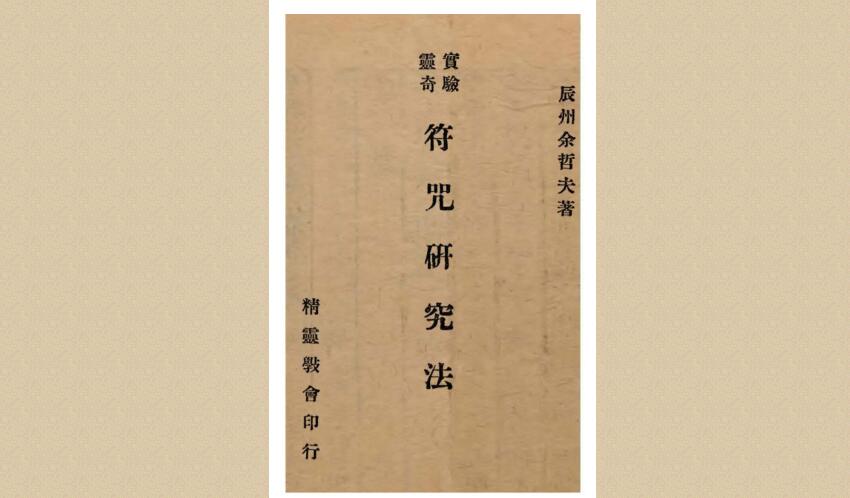 辰州余哲夫著
實驗
靈奇
符咒研究法
精靈敎會印行